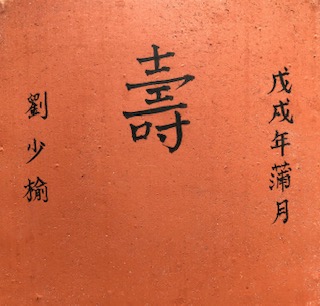 戊戌年蒲月
壽
劉少榆